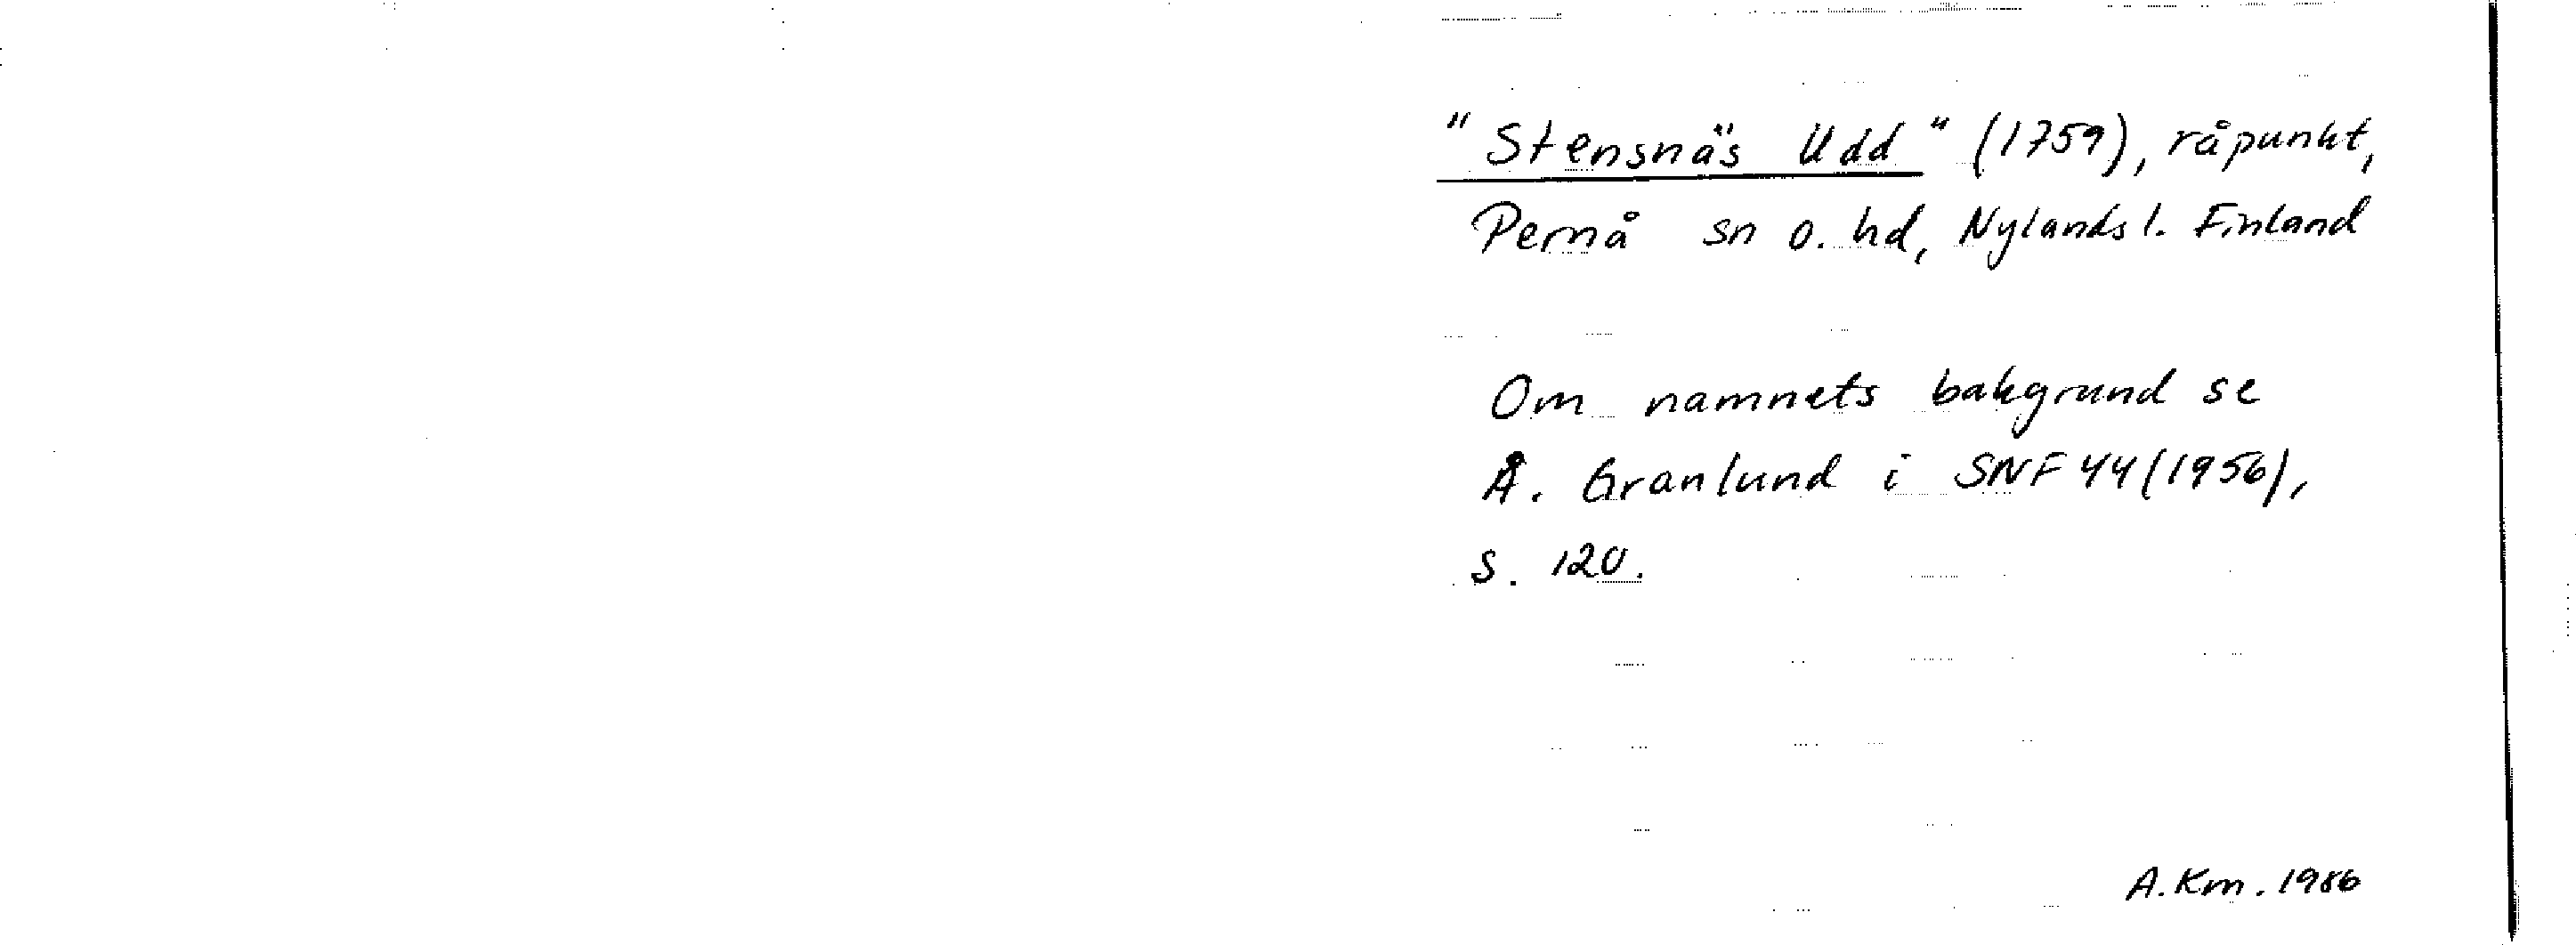 "Stensnäs Udd" (1759), råpunkt,
Pernå sn o. hd, Nylands l. Finland
Om namnets bakgrund se
Å. Granlund i SNF 44 (1956),
s. 120.
A. Km. 1986